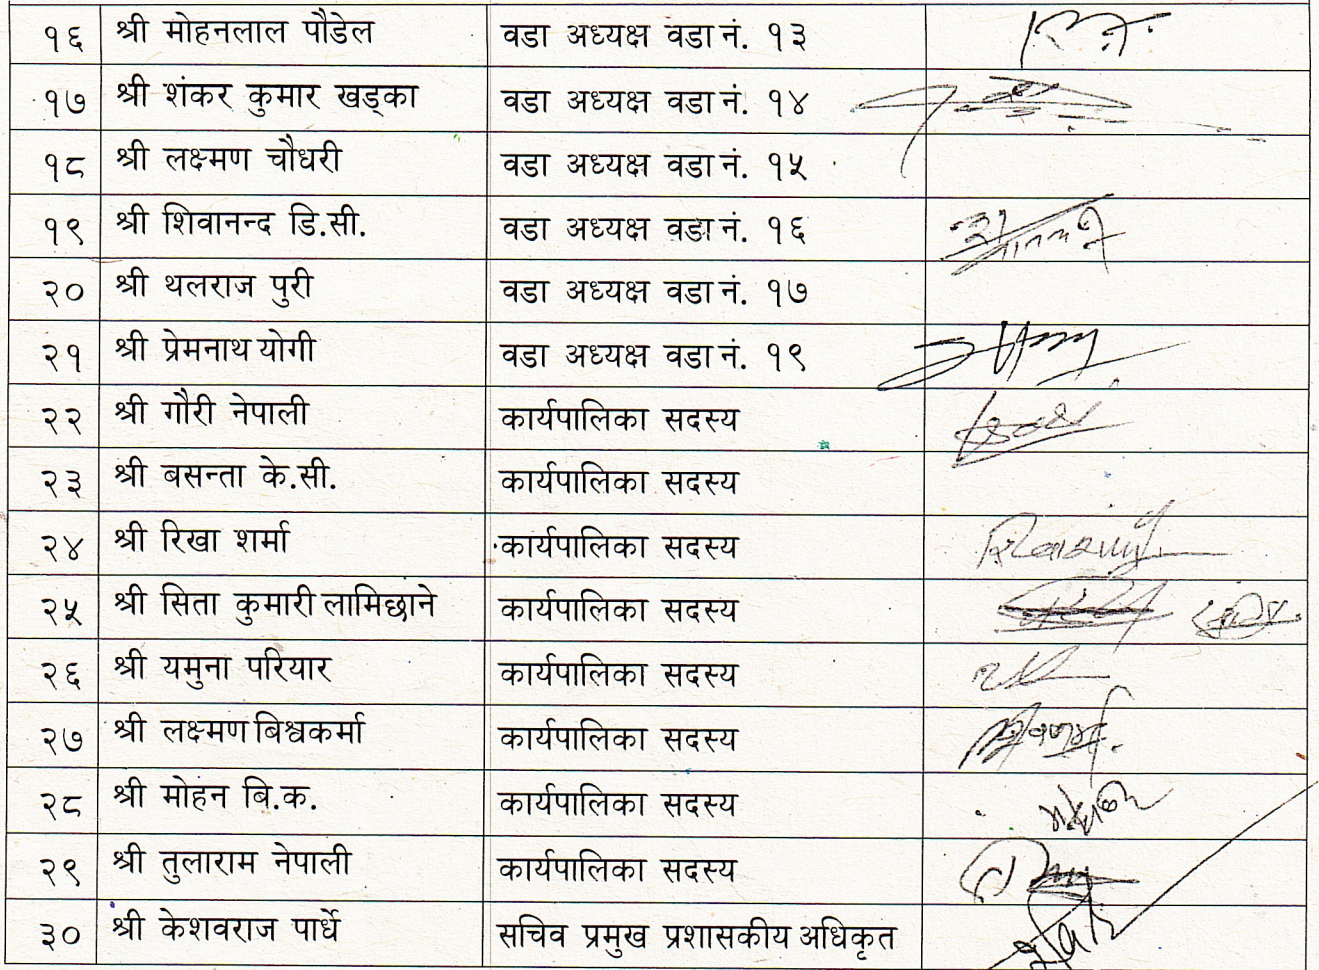 १६ श्री मोहनलाल पौडेल वडा अध्यक्ष वडा नं. १३
१७ श्री शंकर कुमार खड्का वडा अध्यक्ष वडा नं. १४
१८ श्री लक्ष्मण चौधरी वडा अध्यक्ष वडा नं. १५
१९ श्री शिवानन्द डि.सी. वडा अध्यक्ष वडा नं. १६
२० श्री थलराज पुरी वडा अध्यक्ष वडा नं. १७
२१ श्री प्रेमनाथ योगी वडा अध्यक्ष वडा नं. १९
२२ श्री गौरी नेपाली कार्यपालिका सदस्य
२३ श्री बसन्ता के.सी. कार्यपालिका सदस्य
२४ श्री रिखा शर्मा कार्यपालिका सदस्य
२५ श्री सिता कुमारी लामिछाने कार्यपालिका सदस्य
२६ श्री यमुना परियार कार्यपालिका सदस्य
२७ श्री लक्ष्मण बिश्वकर्मा कार्यपालिका सदस्य
२८ श्री मोहन बि.क. कार्यपालिका सदस्य
२९ श्री तुलाराम नेपाली कार्यपालिका सदस्य
३० श्री केशवराज पार्धे सचिव प्रमुख प्रशासकीय अधिकृत